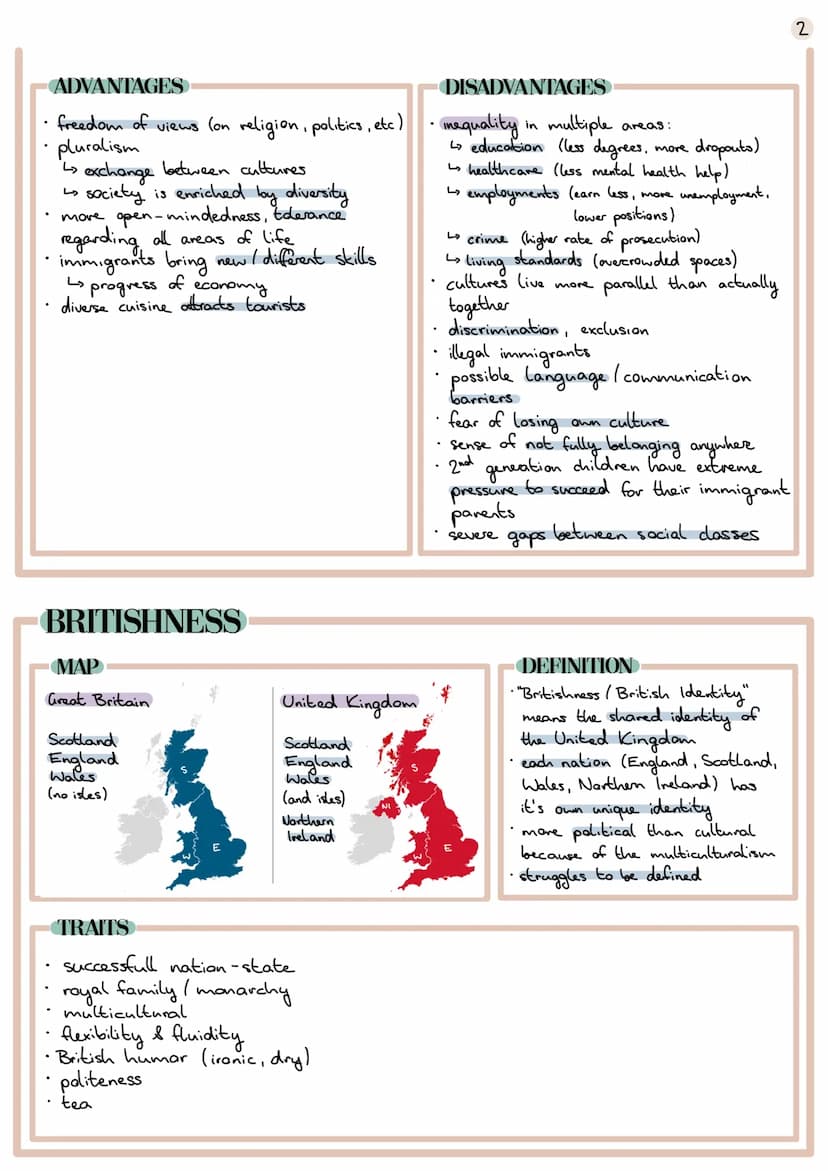 2
ADVANTAGES
· freedom of views (on religion, politics, etc)
· pluralism
↳ exchange between cultures
↳ society is enriched by diversity
· more open-mindedness, tolerance
regarding all areas of life
· immigrants bring new/different skills
↳ progress of economy
· diverse cuisine attracts tourists
DISADVANTAGES
· inequality in multiple areas:
↳ education (less degrees, more dropouts)
↳ healthcare (less mental health help)
↳ employments (earn less, more unemployment,
lower positions)
↳ crime (higher rate of prosecution)
↳ living standards (overcrowded spaces)
· cultures live more parallel than actually
together
· discrimination, exclusion
· illegal immigrants
· possible language/communication
barriers
· fear of losing own culture
· sense of not fully belonging anywhere
· 2nd generation children have extreme
pressure to succeed for their immigrant
parents
· severe gaps between social classes
BRITISHNESS
MAP
Great Britain
Scotland
England
Wales
(no isles)
S
W
E
United Kingdom
Scotland
England
Wales
(and isles)
Northern
Ireland
S
NI
W
E
DEFINITION
· "Britishness/British Identity"
means the shared identity of
the United Kingdom
· each nation (England, Scotland,
Wales, Northern Ireland) has
it's own unique identity
· more political than cultural
because of the multiculturalism
· struggles to be defined
TRAITS
· successfull nation-state
· royal family/monarchy
· multicultural
· flexibility & fluidity
· British humor (ironic, dry)
· politeness
· tea